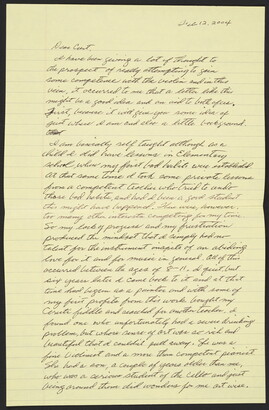 Feb 12, 2004
Dear Curt,
I have been giving a lot of thought to
the prospect of really attempting to gain
some competence with the violin and in this
vein, it occurred to me that a letter like this
might be a good idea and an aid to both of us,
first, because it will give you some idea of
just where I am and also a little background.
I am basically self taught although as a
child I did have lessons in Elementary
school when my first bad habits were established.
At that same time I took some private lessons
from a competent teacher who tried to undo
those bad habits, and had I been a good student
this might have happened. There were, however,
too many other interests competing for my time.
So my lack of progress and my frustration
produced the mindset that I simply had no
talent for the instrument inspite of an abiding
love for it and for music in general. All of this
occurred between the ages of 8-11. I quit, but
years later I came back to it and at that
time had begun as a painter and with some of
my first profits from this work bought my
fiddle and searched for another teacher. I
found one who unfortunately had a severe drinking
problem, but whose sense of art was so rich and
beautiful that I couldn't pull away. She was a
fine violinist and a more than competent pianist.
She had a son, a couple of years older than me,
who was a serious student of the cello and just
being around them did wonders for me art wise.